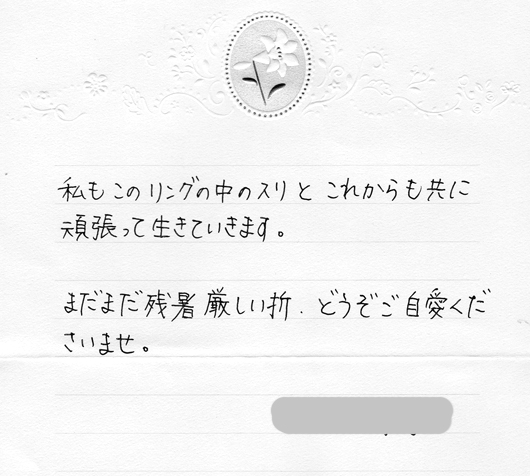 私もこのリングの中のスリとこれからも共に
頑張って生きていきます。
まだまだ残暑厳しい折、どうぞご自愛くだ
さいませ。